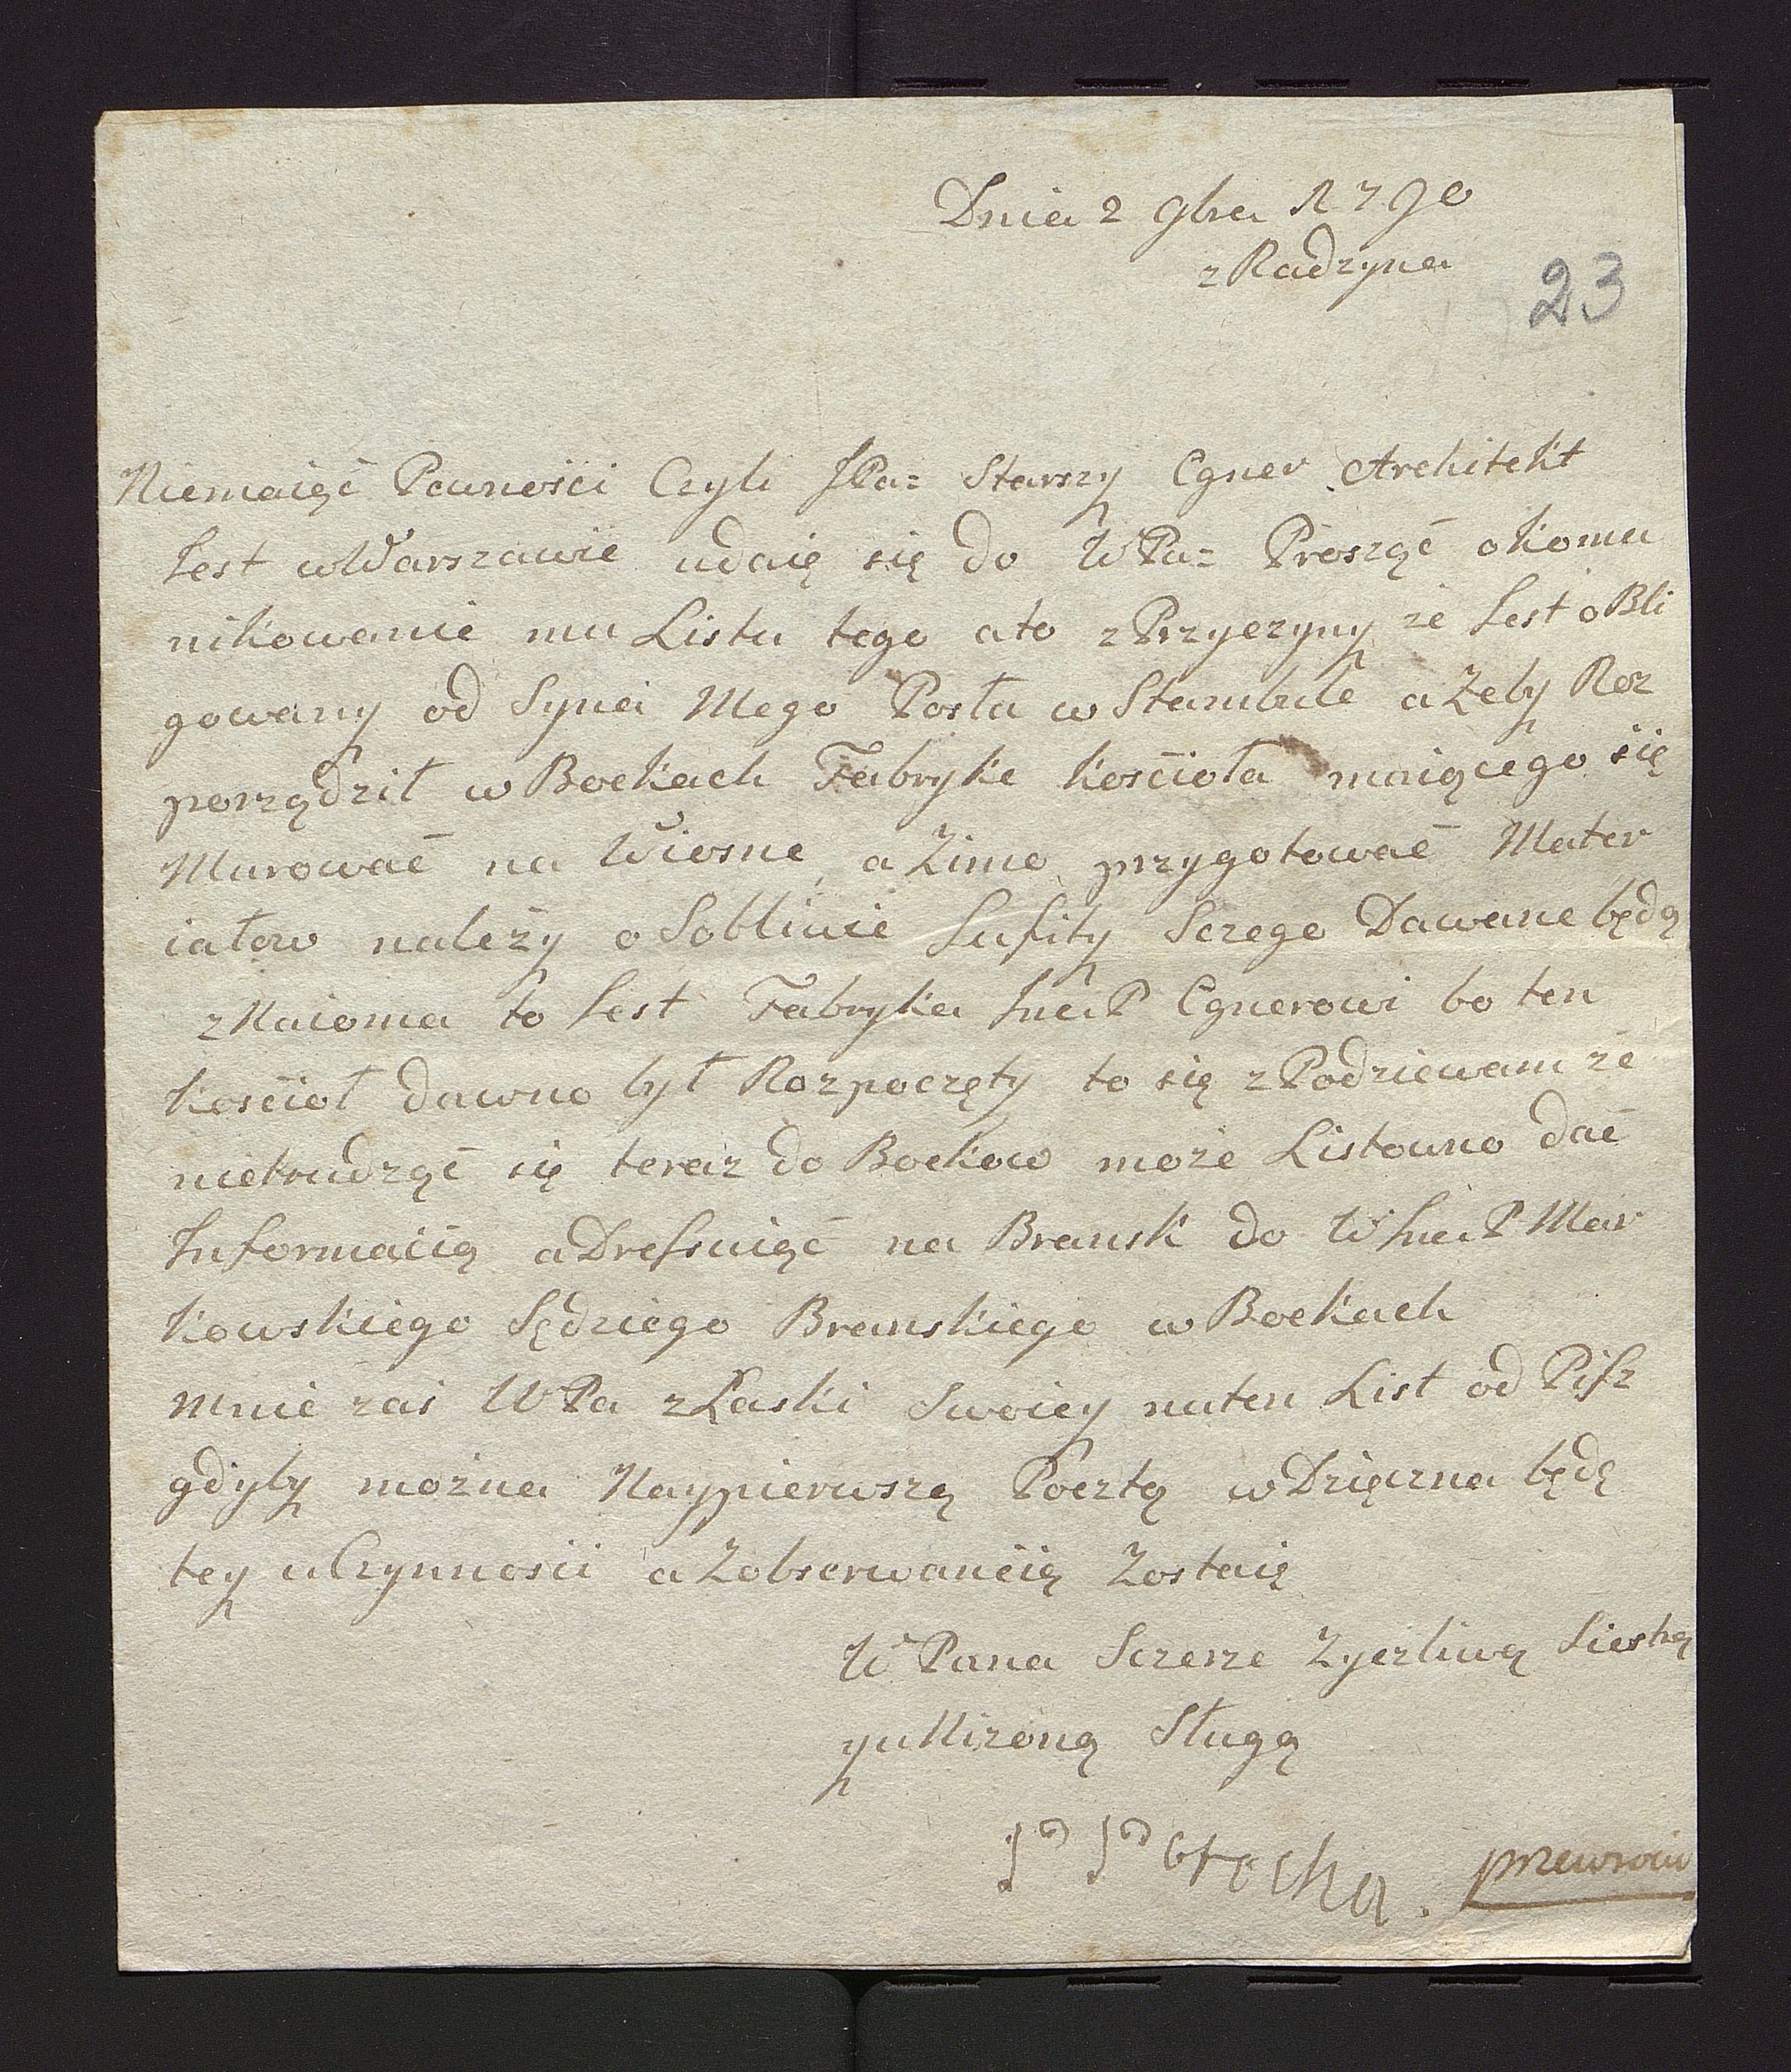 Dnia 2 9bra 1790
z Radzyna
23
Niemaiąć Pewnosci Czyli JPa= Starszy Egner Architekt
Iest w Warszawie udaię się do WPa= Proszęć okomu
nikowanie mu Listu tego ato z Przyczyny ze Iest oBli
gowany od Syna Mego Posła w Stambule a Zeby Roz
porządził w Boćkach Fabryke kościoła maiącego się
Murować na Wiosne, a Zimo przygotować Mater
iałow należy o Sobliwie Sufity Sczego Dawane będą
zNaioma to Iest Fabryka Jmci P Egnerowi bo ten
kościoł dawno był Rozpoczęty to się zPodziewam że
nietrudząć się teraz do Bockow może Listowno dać
Informacią aDresuiąć na Bransk do W Jmci P Mar
kowskiego Sędziego Branskiego w Bockach
Mnie zaś WPa z Łaski Swoiey naten List od Pisz
gdyby można Naypierwszą Pocztą wDzięczna będę
tey uCzynnosci a Zobserwancią Zostaię
W Pana Sczerze Zyczliwą Siostrą
yuNizoną Sługą
J P Potocka.